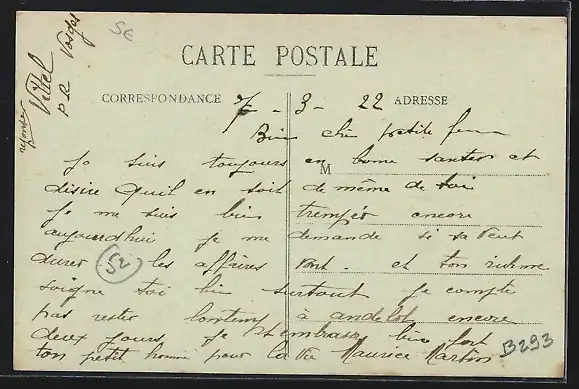 Vittel
P R Vosges
SE
CARTE POSTALE
CORRESPONDANCE 7 - 3 - 22 ADRESSE
Bien chère petite femme
Je suis toujours en bonne santer et
M
désire quil en soit de même de toi
Je me suis bien tremper encore
aujourdhui je me demande si sa veut
durer 52 les affaires vont. et ton rhume
soigne toi bien surtout je compte
pas rester lontemp à andelot encore
deux jours, je t'embrasse bien fort
ton petit homme pour la vie Maurice Martin
B293